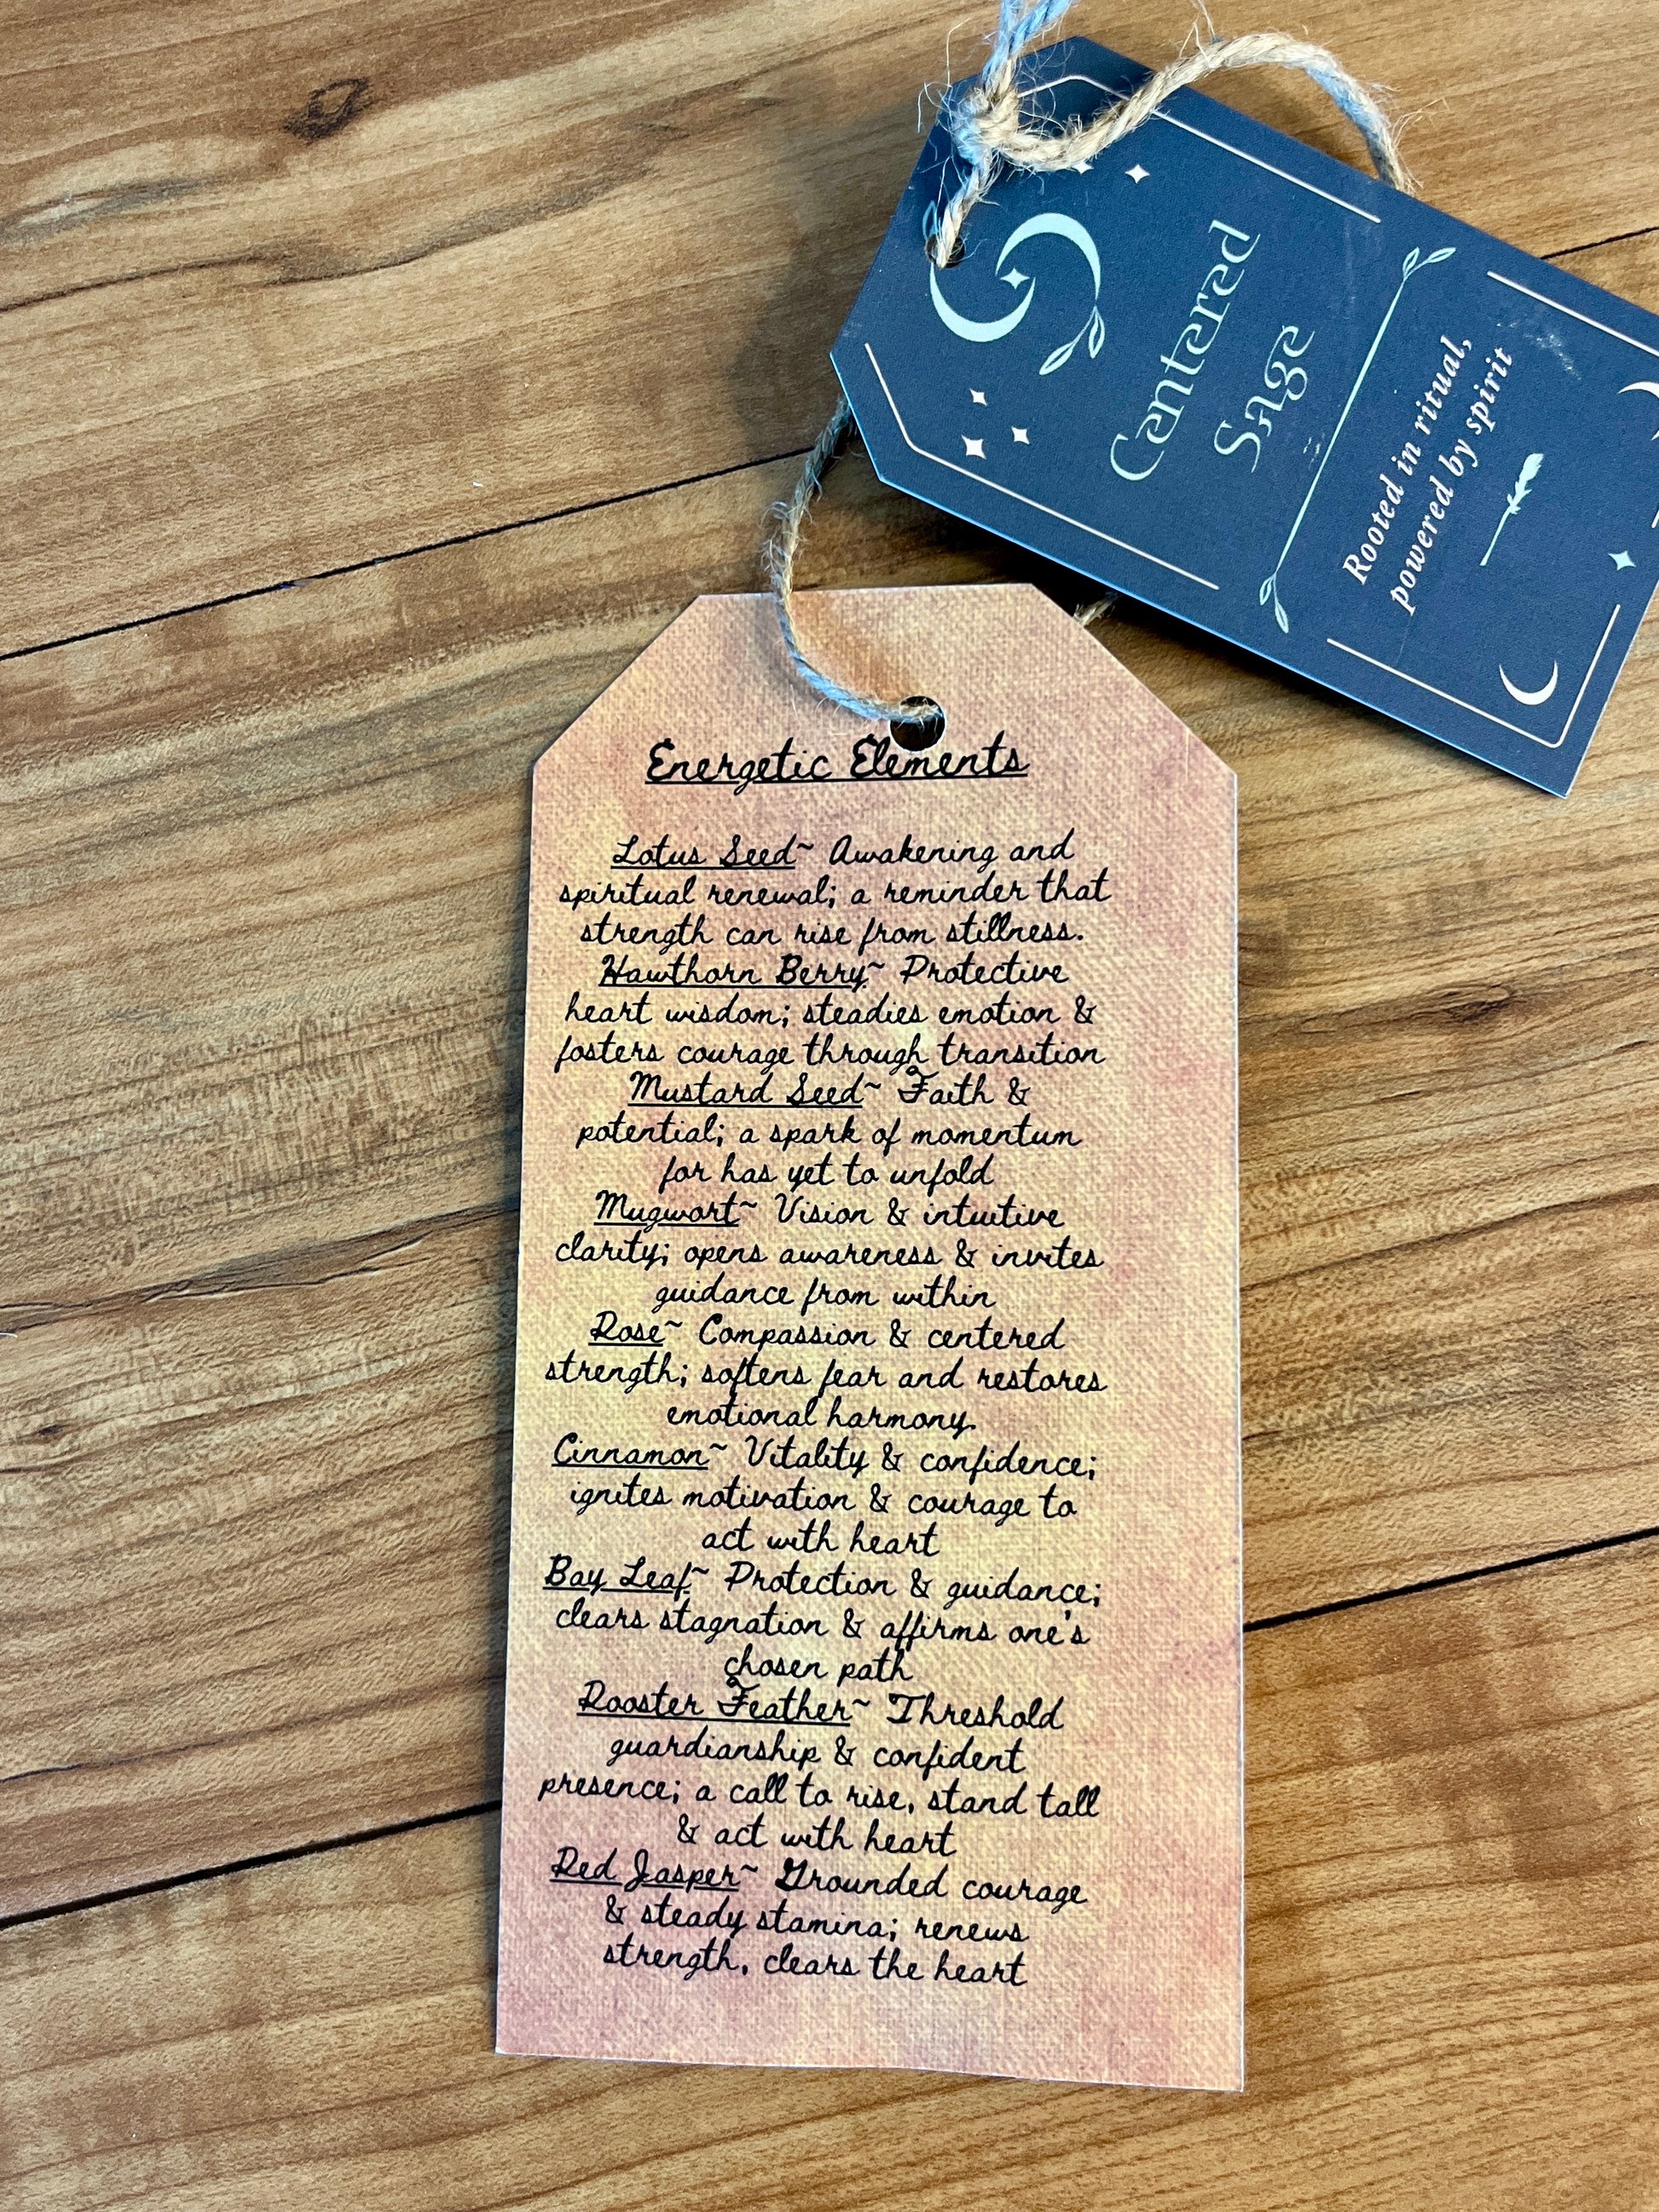 Centered
Sage
Rooted in ritual,
powered by spirit
Energetic Elements
Lotus Seed~ Awakening and
spiritual renewal; a reminder that
strength can rise from stillness.
Hawthorn Berry~ Protective
heart wisdom; steadies emotion &
fosters courage through transition
Mustard Seed~ Faith &
potential; a spark of momentum
for has yet to unfold
Mugwort~ Vision & intuitive
clarity; opens awareness & invites
guidance from within
Rose~ Compassion & centered
strength; softens fear and restores
emotional harmony.
Cinnamon~ Vitality & confidence;
ignites motivation & courage to
act with heart
Bay Leaf~ Protection & guidance;
clears stagnation & affirms one's
chosen path
Rooster Feather~ Threshold
guardianship & confident
presence; a call to rise, stand tall
& act with heart
Red Jasper~ Grounded courage
& steady stamina; renews
strength, clears the heart